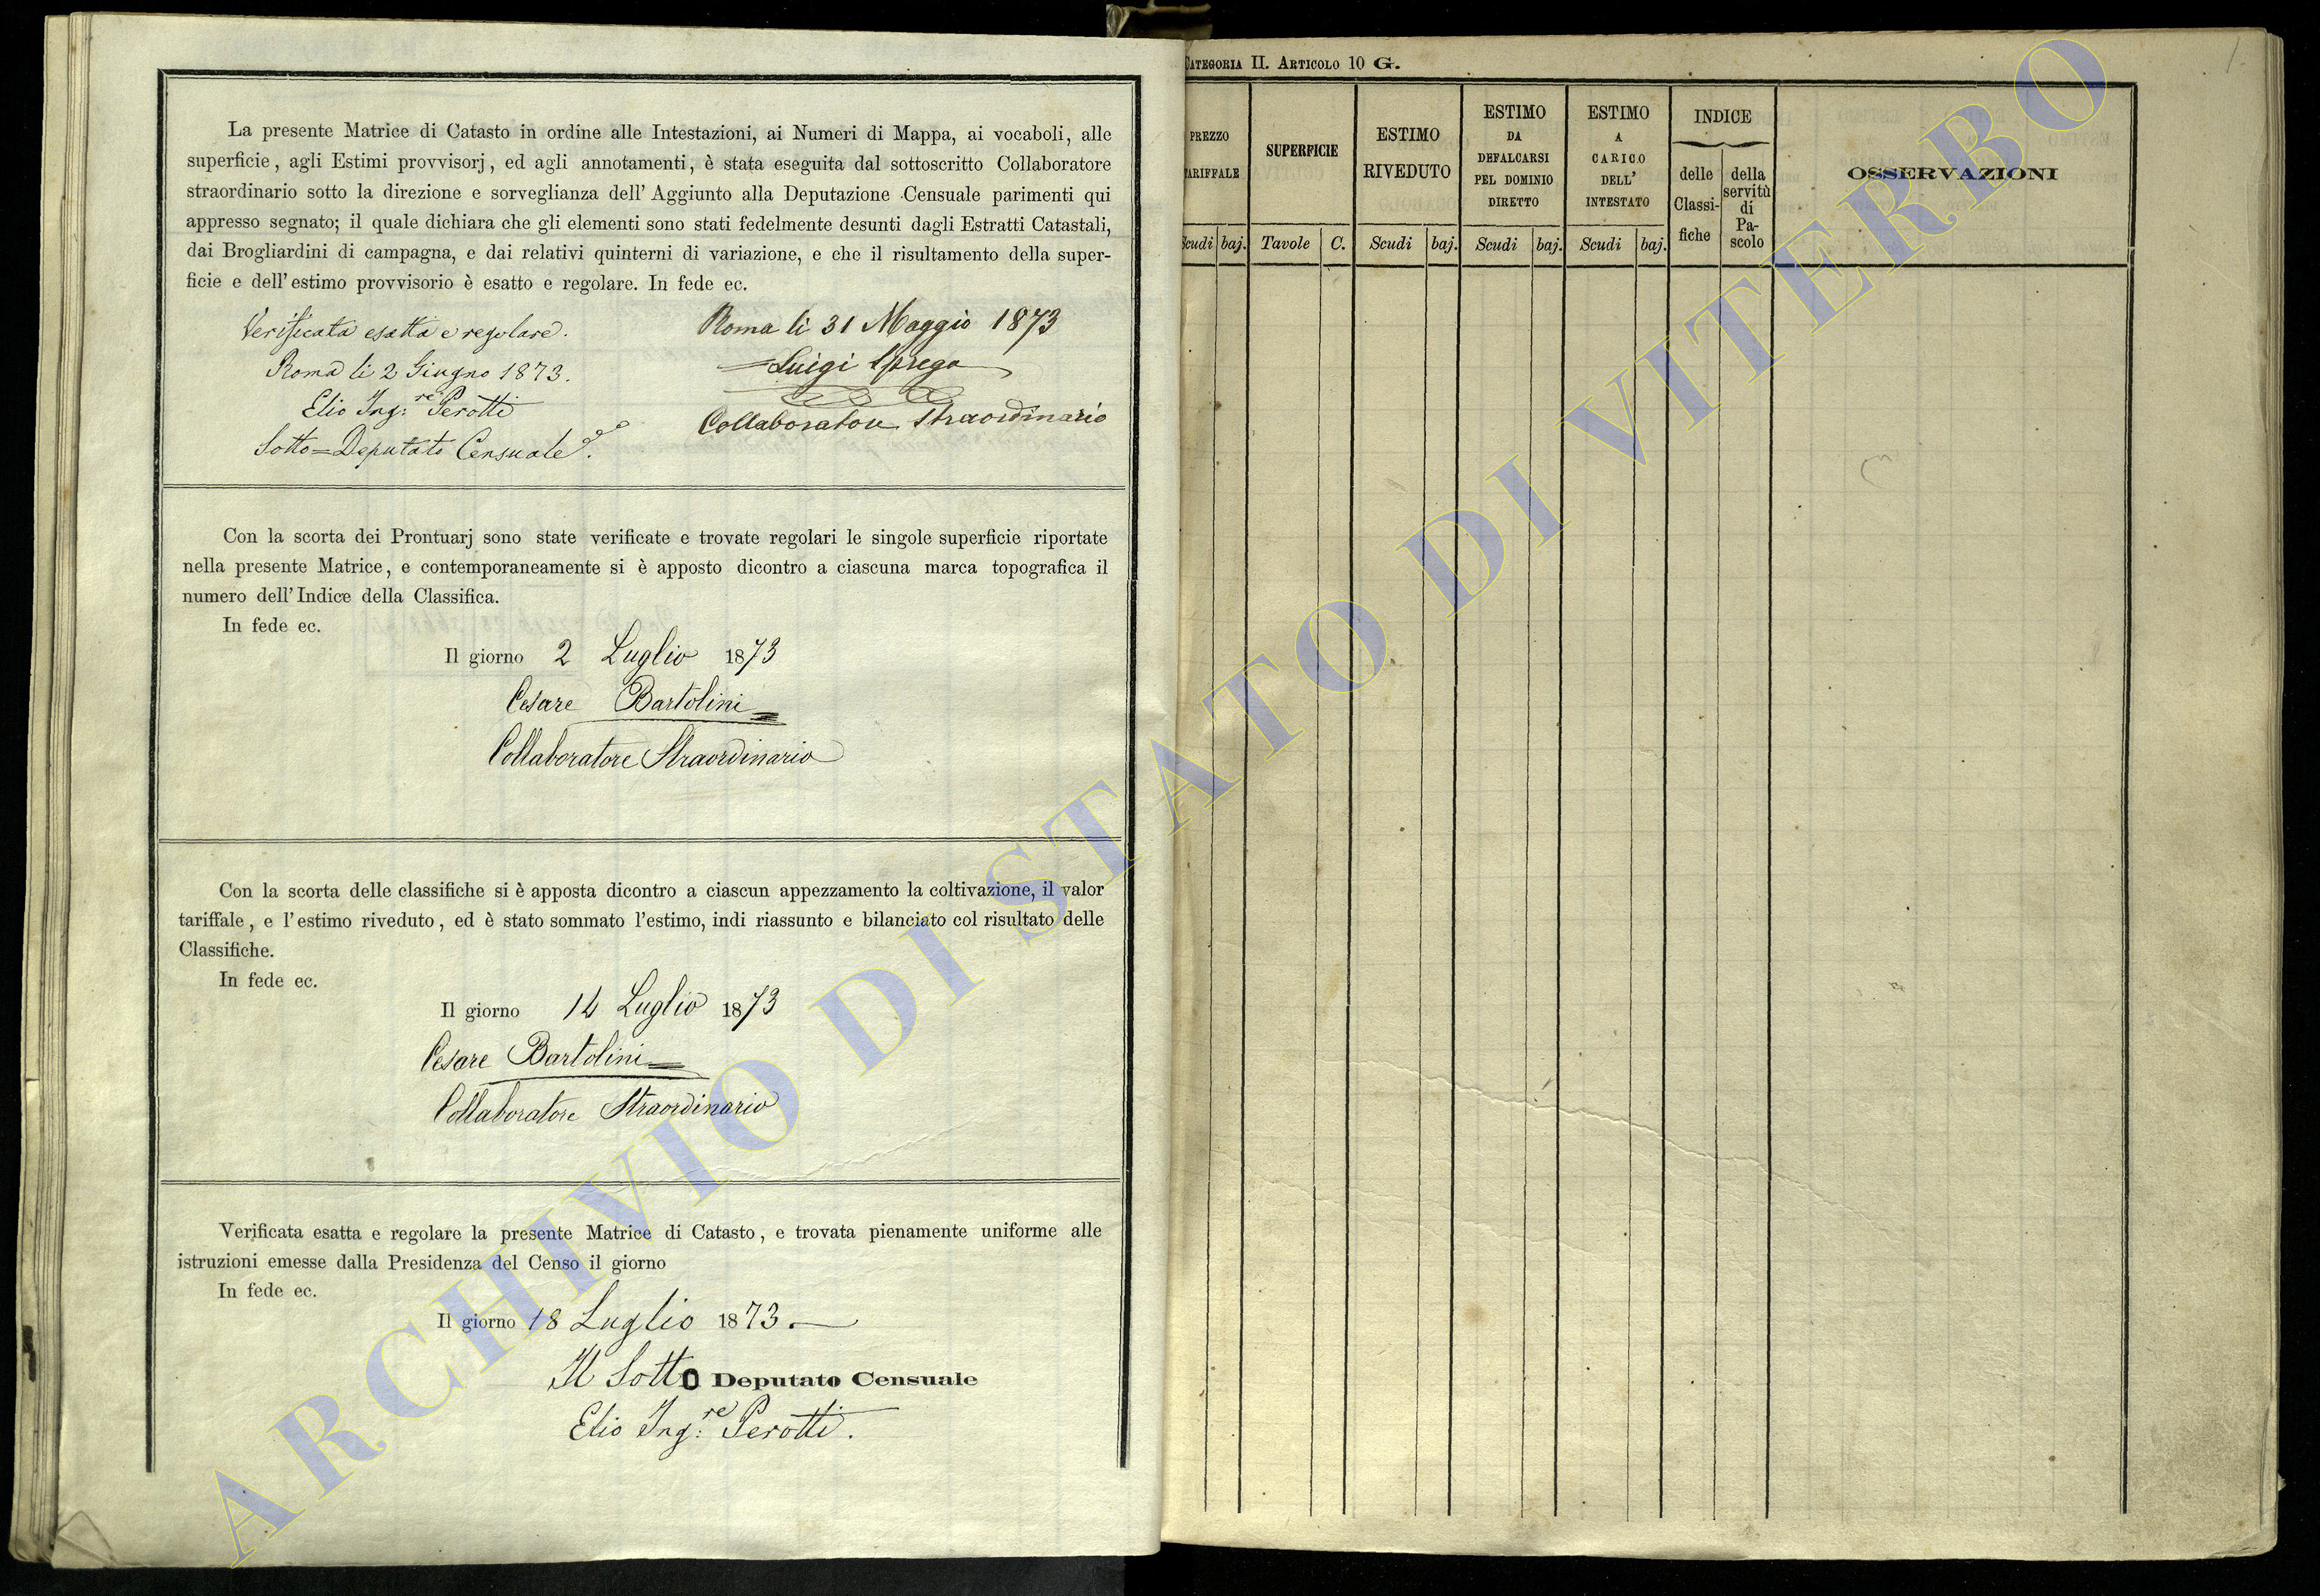 La presente Matrice di Catasto in ordine alle Intestazioni, ai Numeri di Mappa, ai vocaboli, alle
superficie, agli Estimi provvisorj, ed agli annotamenti, è stata eseguita dal sottoscritto Collaboratore
straordinario sotto la direzione e sorveglianza dell' Aggiunto alla Deputazione Censuale parimenti qui
appresso segnato; il quale dichiara che gli elementi sono stati fedelmente desunti dagli Estratti Catastali,
dai Brogliardini di campagna, e dai relativi quinterni di variazione, e che il risultamento della super-
ficie e dell' estimo provvisorio è esatto e regolare. In fede ec.
Verificata esatta e regolare.
Roma li 2 Giugno 1873.
Elio Ing:re Perotti
Sotto=Deputato Censuale.
Roma li 31 Maggio 1873
Luigi Sprega
Collaboratore Straordinario
Con la scorta dei Prontuarj sono state verificate e trovate regolari le singole superficie riportate
nella presente Matrice, e contemporaneamente si è apposto dicontro a ciascuna marca topografica il
numero dell' Indice della Classifica.
In fede ec.
Il giorno 2 Luglio 1873
Cesare Bartolini
Collaboratore Straordinario
Con la scorta delle classifiche si è apposta dicontro a ciascun appezzamento la coltivazione, il valor
tariffale, e l'estimo riveduto, ed è stato sommato l'estimo, indi riassunto e bilanciato col risultato delle
Classifiche.
In fede ec.
Il giorno 14 Luglio 1873
Cesare Bartolini
Collaboratore Straordinario
Verificata esatta e regolare la presente Matrice di Catasto, e trovata pienamente uniforme alle
istruzioni emesse dalla Presidenza del Censo il giorno
In fede ec.
Il giorno 18 Luglio 1873.
Il Sotto Deputato Censuale
Elio Ing:re Perotti.
CATEGORIA II. ARTICOLO 10 G.
1
PREZZO
TARIFFALE
Scudi baj.
SUPERFICIE
Tavole C.
ESTIMO
RIVEDUTO
Scudi baj.
ESTIMO
DA
DEFALCARSI
PEL DOMINIO
DIRETTO
Scudi baj.
ESTIMO
A
CARICO
DELL'
INTESTATO
Scudi baj.
INDICE
delle
Classi-
fiche
della
servitù
di
Pa-
scolo
OSSERVAZIONI
ARCHIVIO DI STATO DI VITERBO